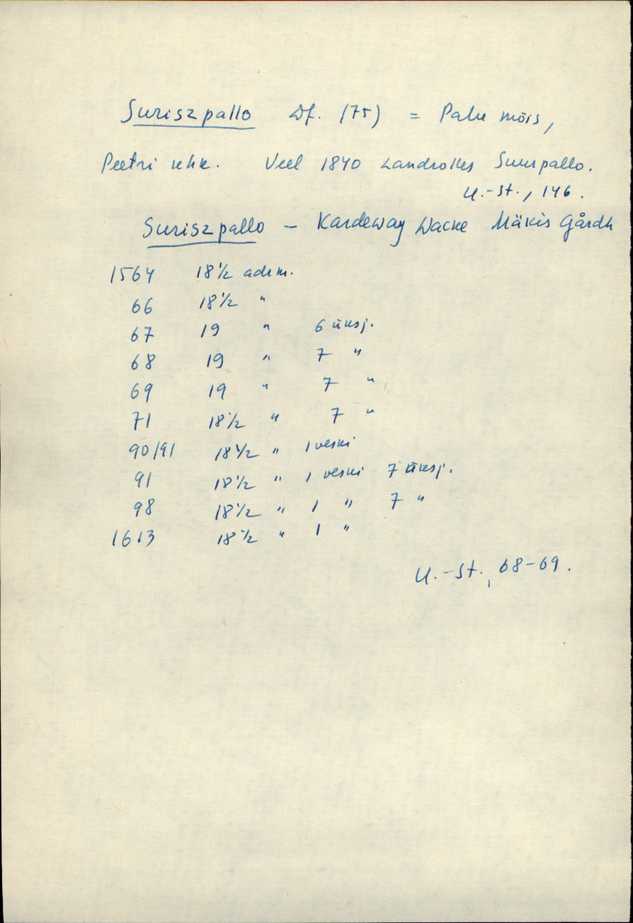 Suriszpallo Df. (75) = Palu mõis,
Peetri khk. Veel 1840 Landrolles Suurpallo.
U.-St., 146.
Suriszpallo – Kardeway Wacke Mäkis Gårdh
1564 18 1/2 adrm.
66 18 1/2 "
67 19 " 6 üksj.
68 19 " 7 "
69 19 " 7 "
71 18 1/2 " 7 "
90/91 18 1/2 " 1 veski
91 18 1/2 " 1 veski 7 üksj.
98 18 1/2 " 1 " 7 "
1613 18 1/2 " 1 "
U.-St., 68-69.